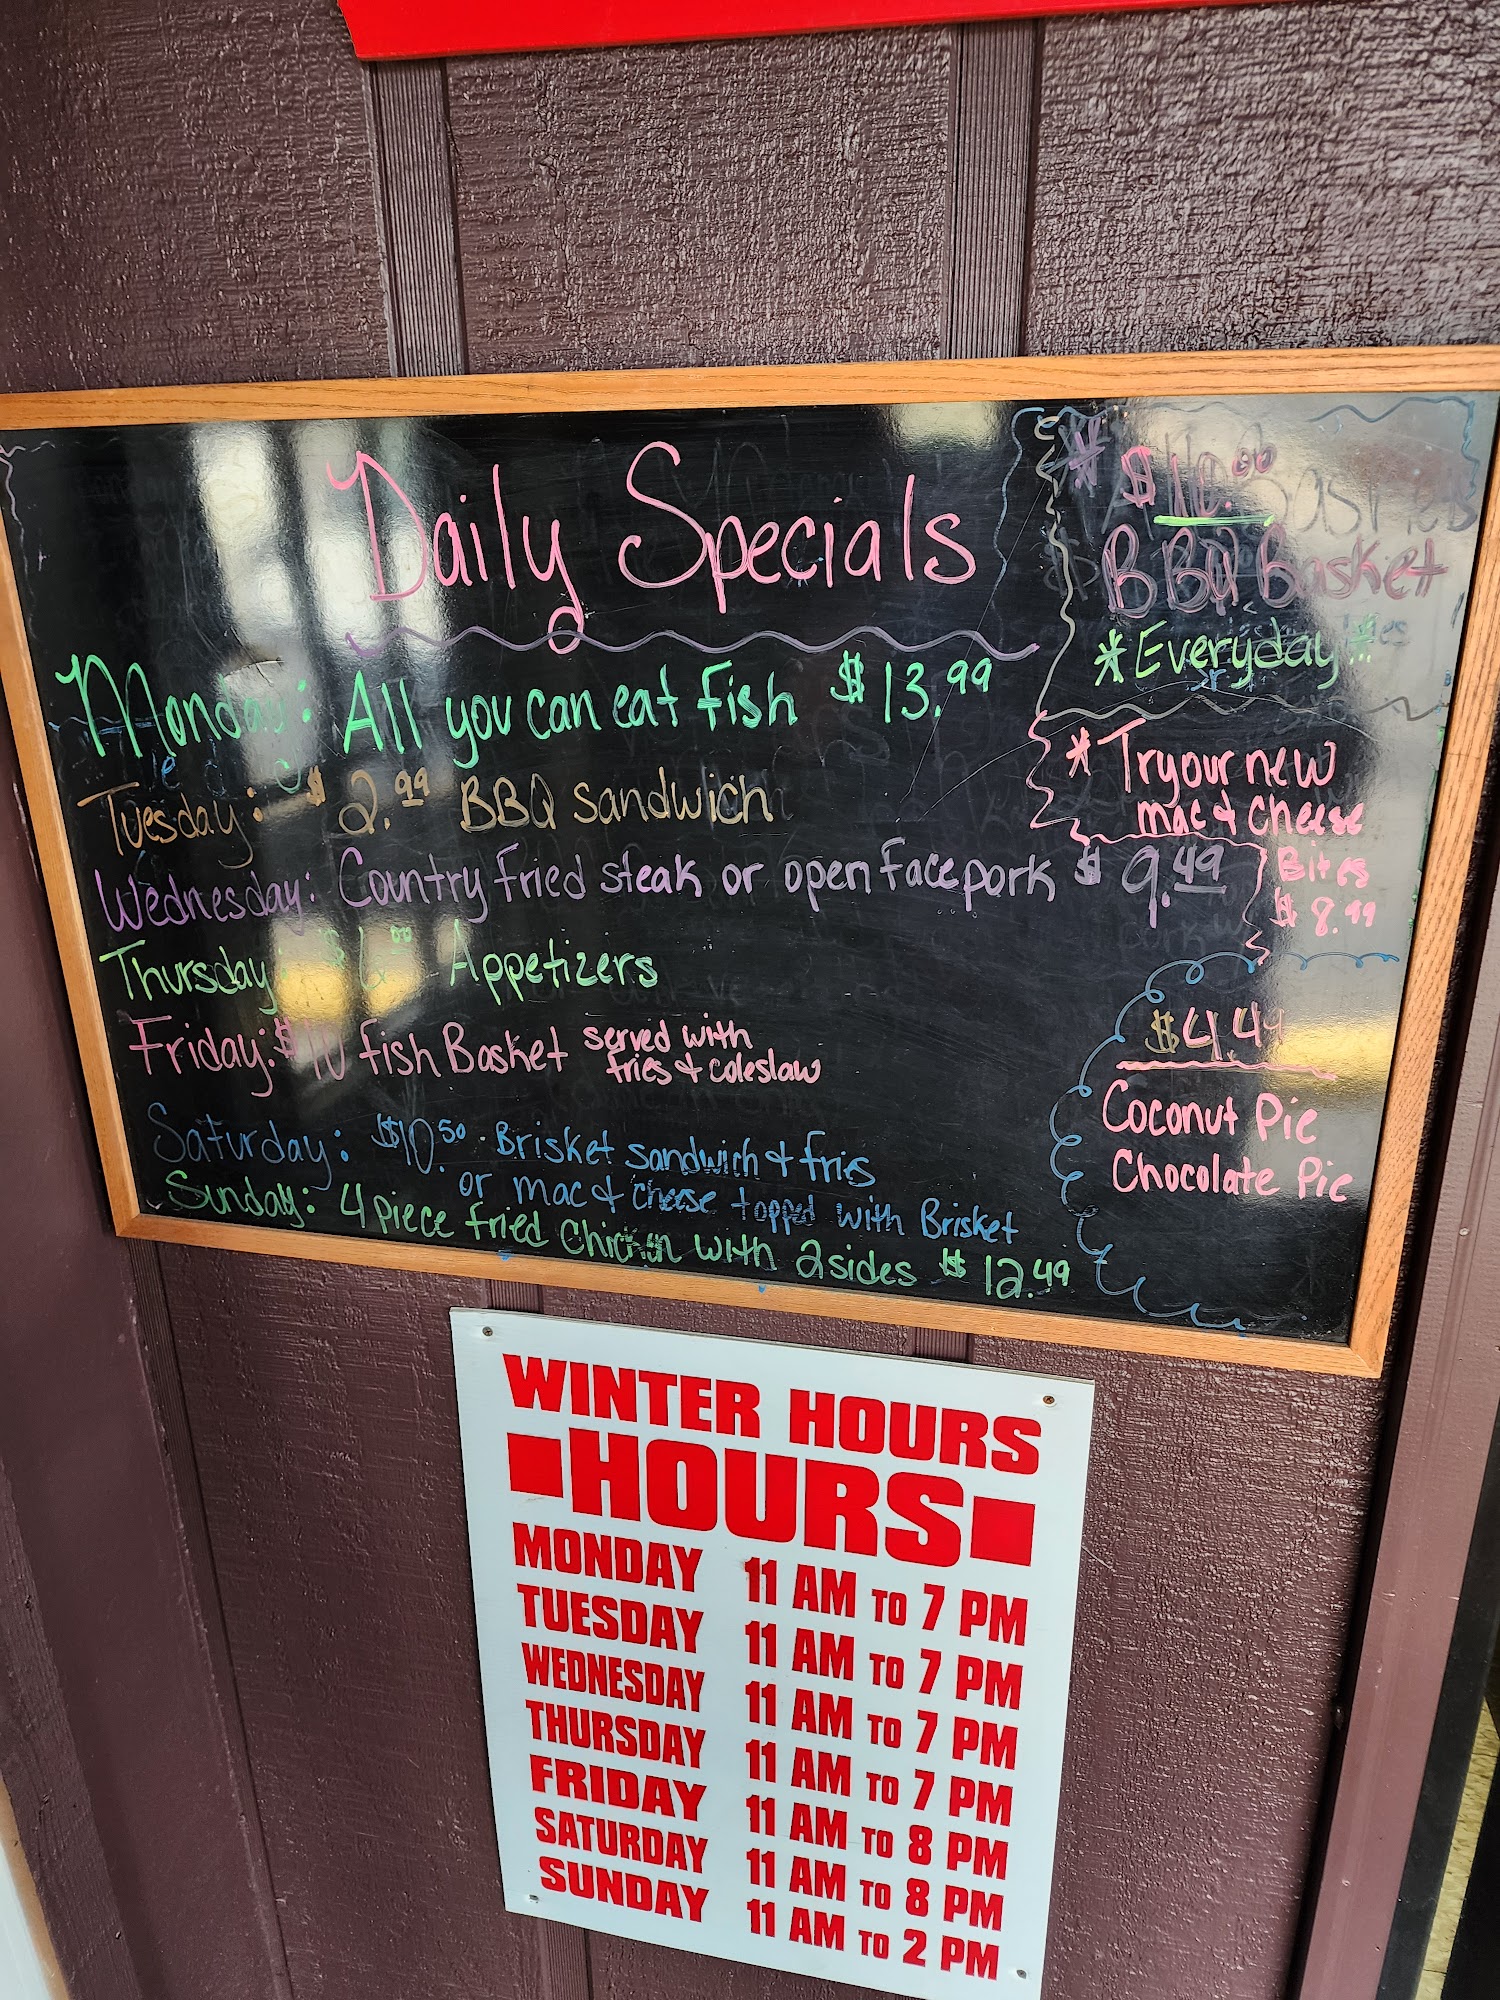 Daily Specials
Monday: All you can eat fish $13.99
Tuesday: $2.99 BBQ sandwich
Wednesday: Country fried steak or open face pork $9.49
Thursday: $6.00 Appetizers
Friday: $10 fish Basket served with
fries & coleslaw
Saturday: $10.50 Brisket sandwich & fries
or mac & cheese topped with Brisket
Sunday: 4 piece fried chicken with 2 sides $12.49
* $10.00
BBQ Basket
*Everyday*
* Try your new
mac & cheese
Bites
$8.99
$4.49
Coconut Pie
Chocolate Pie
WINTER HOURS
HOURS
MONDAY 11 AM TO 7 PM
TUESDAY 11 AM TO 7 PM
WEDNESDAY 11 AM TO 7 PM
THURSDAY 11 AM TO 7 PM
FRIDAY 11 AM TO 8 PM
SATURDAY 11 AM TO 8 PM
SUNDAY 11 AM TO 2 PM